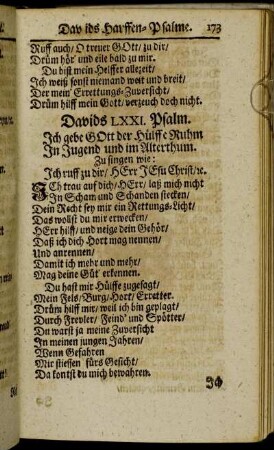 Davids Harffen-Psalme. 173
Ruff auch/ O treuer GOtt/ zu dir/
Drüm hör' und eile bald zu mir.
Du bist mein Helffer allezeit/
Ich weiß sonst niemand weit und breit/
Der mein' Errettungs-Zuversicht/
Drüm hilff mein Gott/ verzeuch doch nicht.
Davids LXXI. Psalm.
Ich gebe GOtt der Hülffe Ruhm
In Jugend und im Alterthum.
Zu singen wie:
Ich ruff zu dir/ HErr JEsu Christ/ ꝛc.
ICh trau auf dich/ HErr/ laß mich nicht
In Scham und Schanden stecken/
Dein Recht sey mir ein Rettungs-Licht/
Das wollst du mir erwecken/
HErr hilff/ und neige dein Gehör/
Daß ich dich Hort mag nennen/
Und anrennen/
Damit ich mehr und mehr/
Mag deine Güt' erkennen.
Du hast mir Hülffe zugesagt/
Mein Fels/ Burg/ Hort/ Erretter.
Drüm hilff mir/ weil ich bin geplagt/
Durch Frevler/ Feind' und Spötter/
Du warst ja meine Zuversicht
In meinen jungen Jahren/
Wenn Gefahren
Mir stiessen fürs Gesicht/
Da kontst du mich bewahren.
Ich